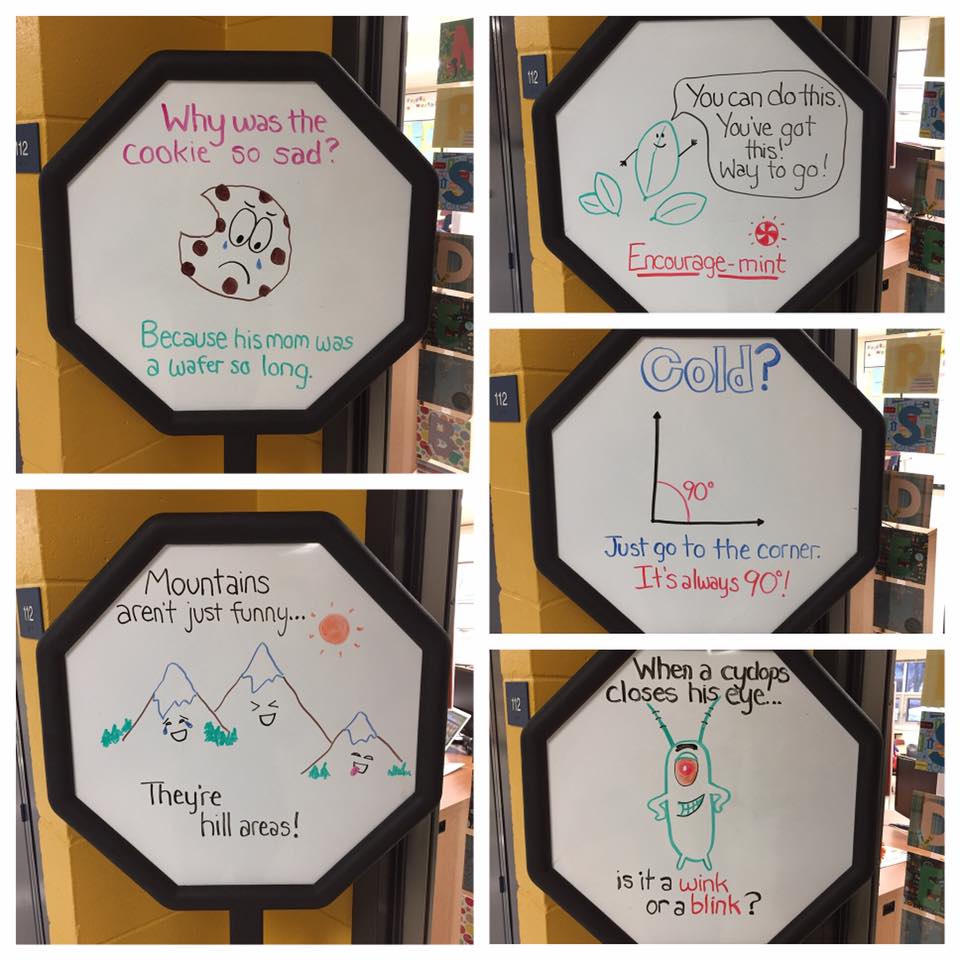 Why was the
cookie so sad?
Because his mom was
a wafer so long.
112
You can do this.
You've got
this!
Way to go!
Encourage-mint
112
Cold?
90°
Just go to the corner.
It's always 90°!
112
Mountains
aren't just funny...
They're
hill areas!
112
When a cyclops
closes his eye...
is it a wink
or a blink?
112